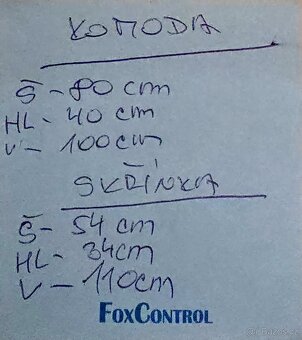 KOMODA
Š - 80 cm
HL - 40 cm
V - 100 cm
SKŘÍNKA
Š - 54 cm
HL - 34cm
V - 110cm
FOXCONTROL